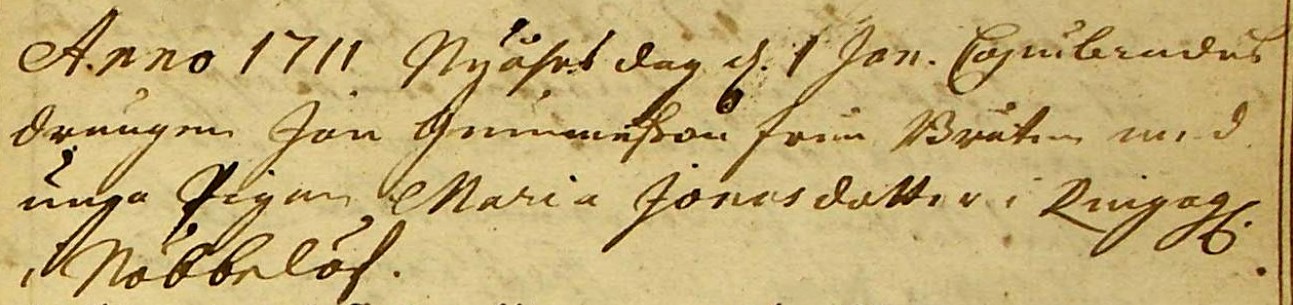 Anno 1711 Nyåhrs dag d. 1 Jan. Copulerades
drängen Jon Gummesson från Bråten med
unga Pigan Maria Jonasdotter i
i Nöbbelöf.